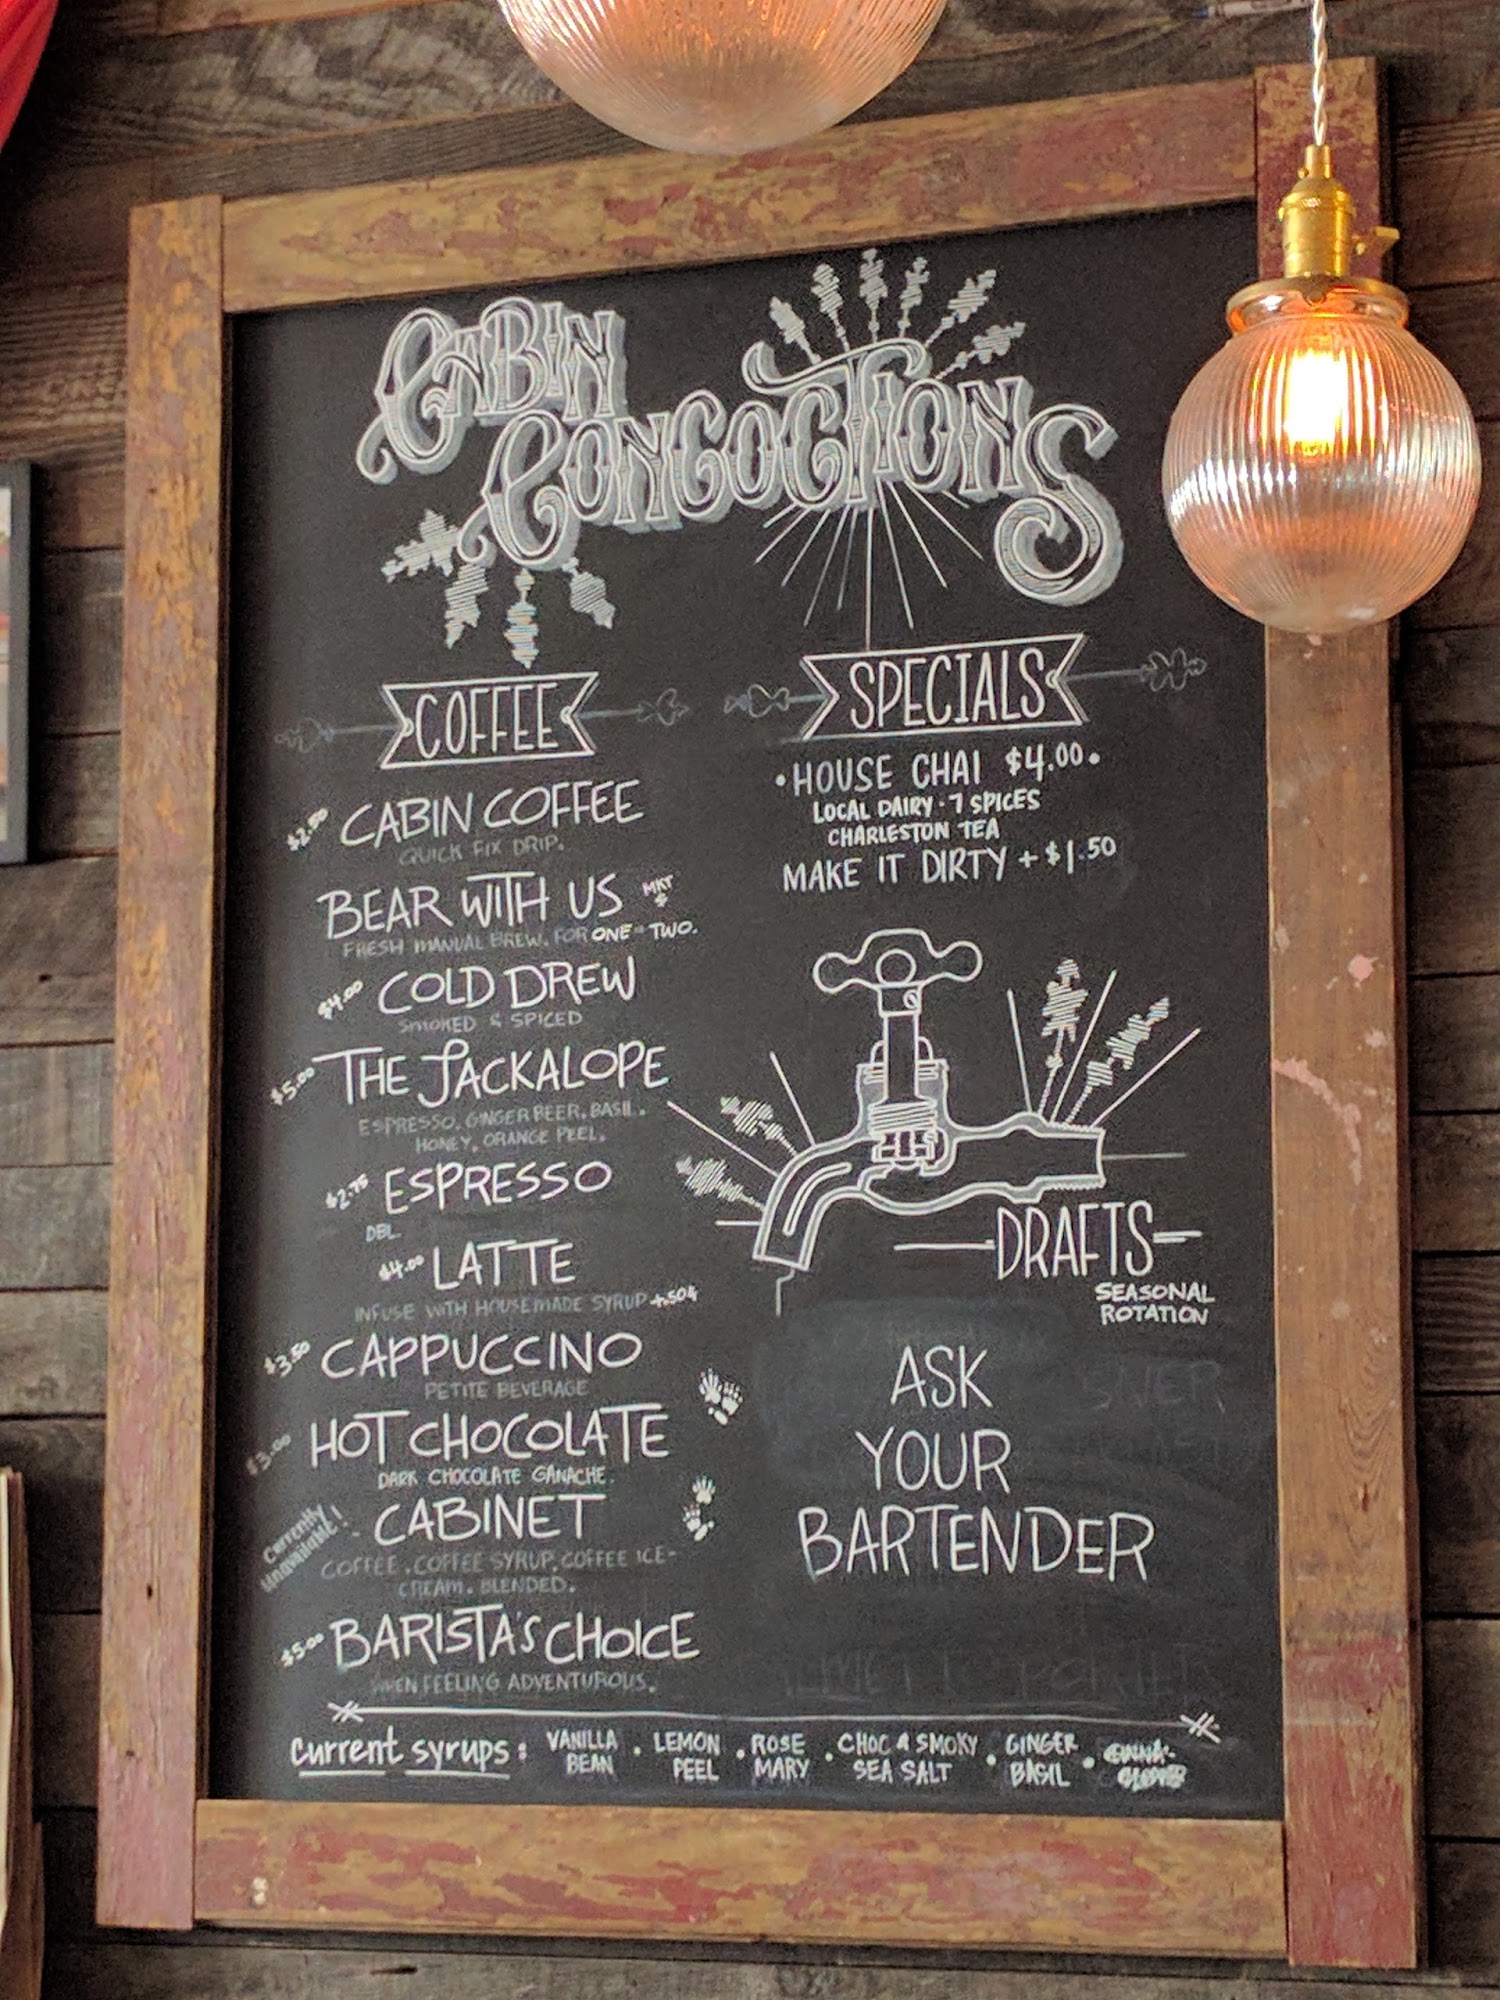 CABIN
CONCOCTIONS
COFFEE
$2.50 CABIN COFFEE
QUICK FIX DRIP.
BEAR WITH US MKT $
FRESH MANUAL BREW. FOR ONE - TWO.
$4.00 COLD DREW
SMOKED & SPICED
$5.00 THE JACKALOPE
ESPRESSO. GINGER BEER. BASIL.
HONEY. ORANGE PEEL.
$2.75 ESPRESSO
DBL.
$4.00 LATTE
INFUSE WITH HOUSEMADE SYRUP +.50¢
$3.50 CAPPUCCINO
PETITE BEVERAGE
$3.00 HOT CHOCOLATE
DARK CHOCOLATE GANACHE.
Currently
unavailable!
CABINET
COFFEE. COFFEE SYRUP. COFFEE ICE-
CREAM. BLENDED.
$5.00 BARISTA'S CHOICE
WHEN FEELING ADVENTUROUS.
SPECIALS
• HOUSE CHAI $4.00 •
LOCAL DAIRY · 7 SPICES
CHARLESTON TEA
MAKE IT DIRTY + $1.50
DRAFTS
SEASONAL
ROTATION
ASK
YOUR
BARTENDER
Current syrups: VANILLA BEAN • LEMON PEEL • ROSE MARY • CHOC & SMOKY SEA SALT • GINGER BASIL •